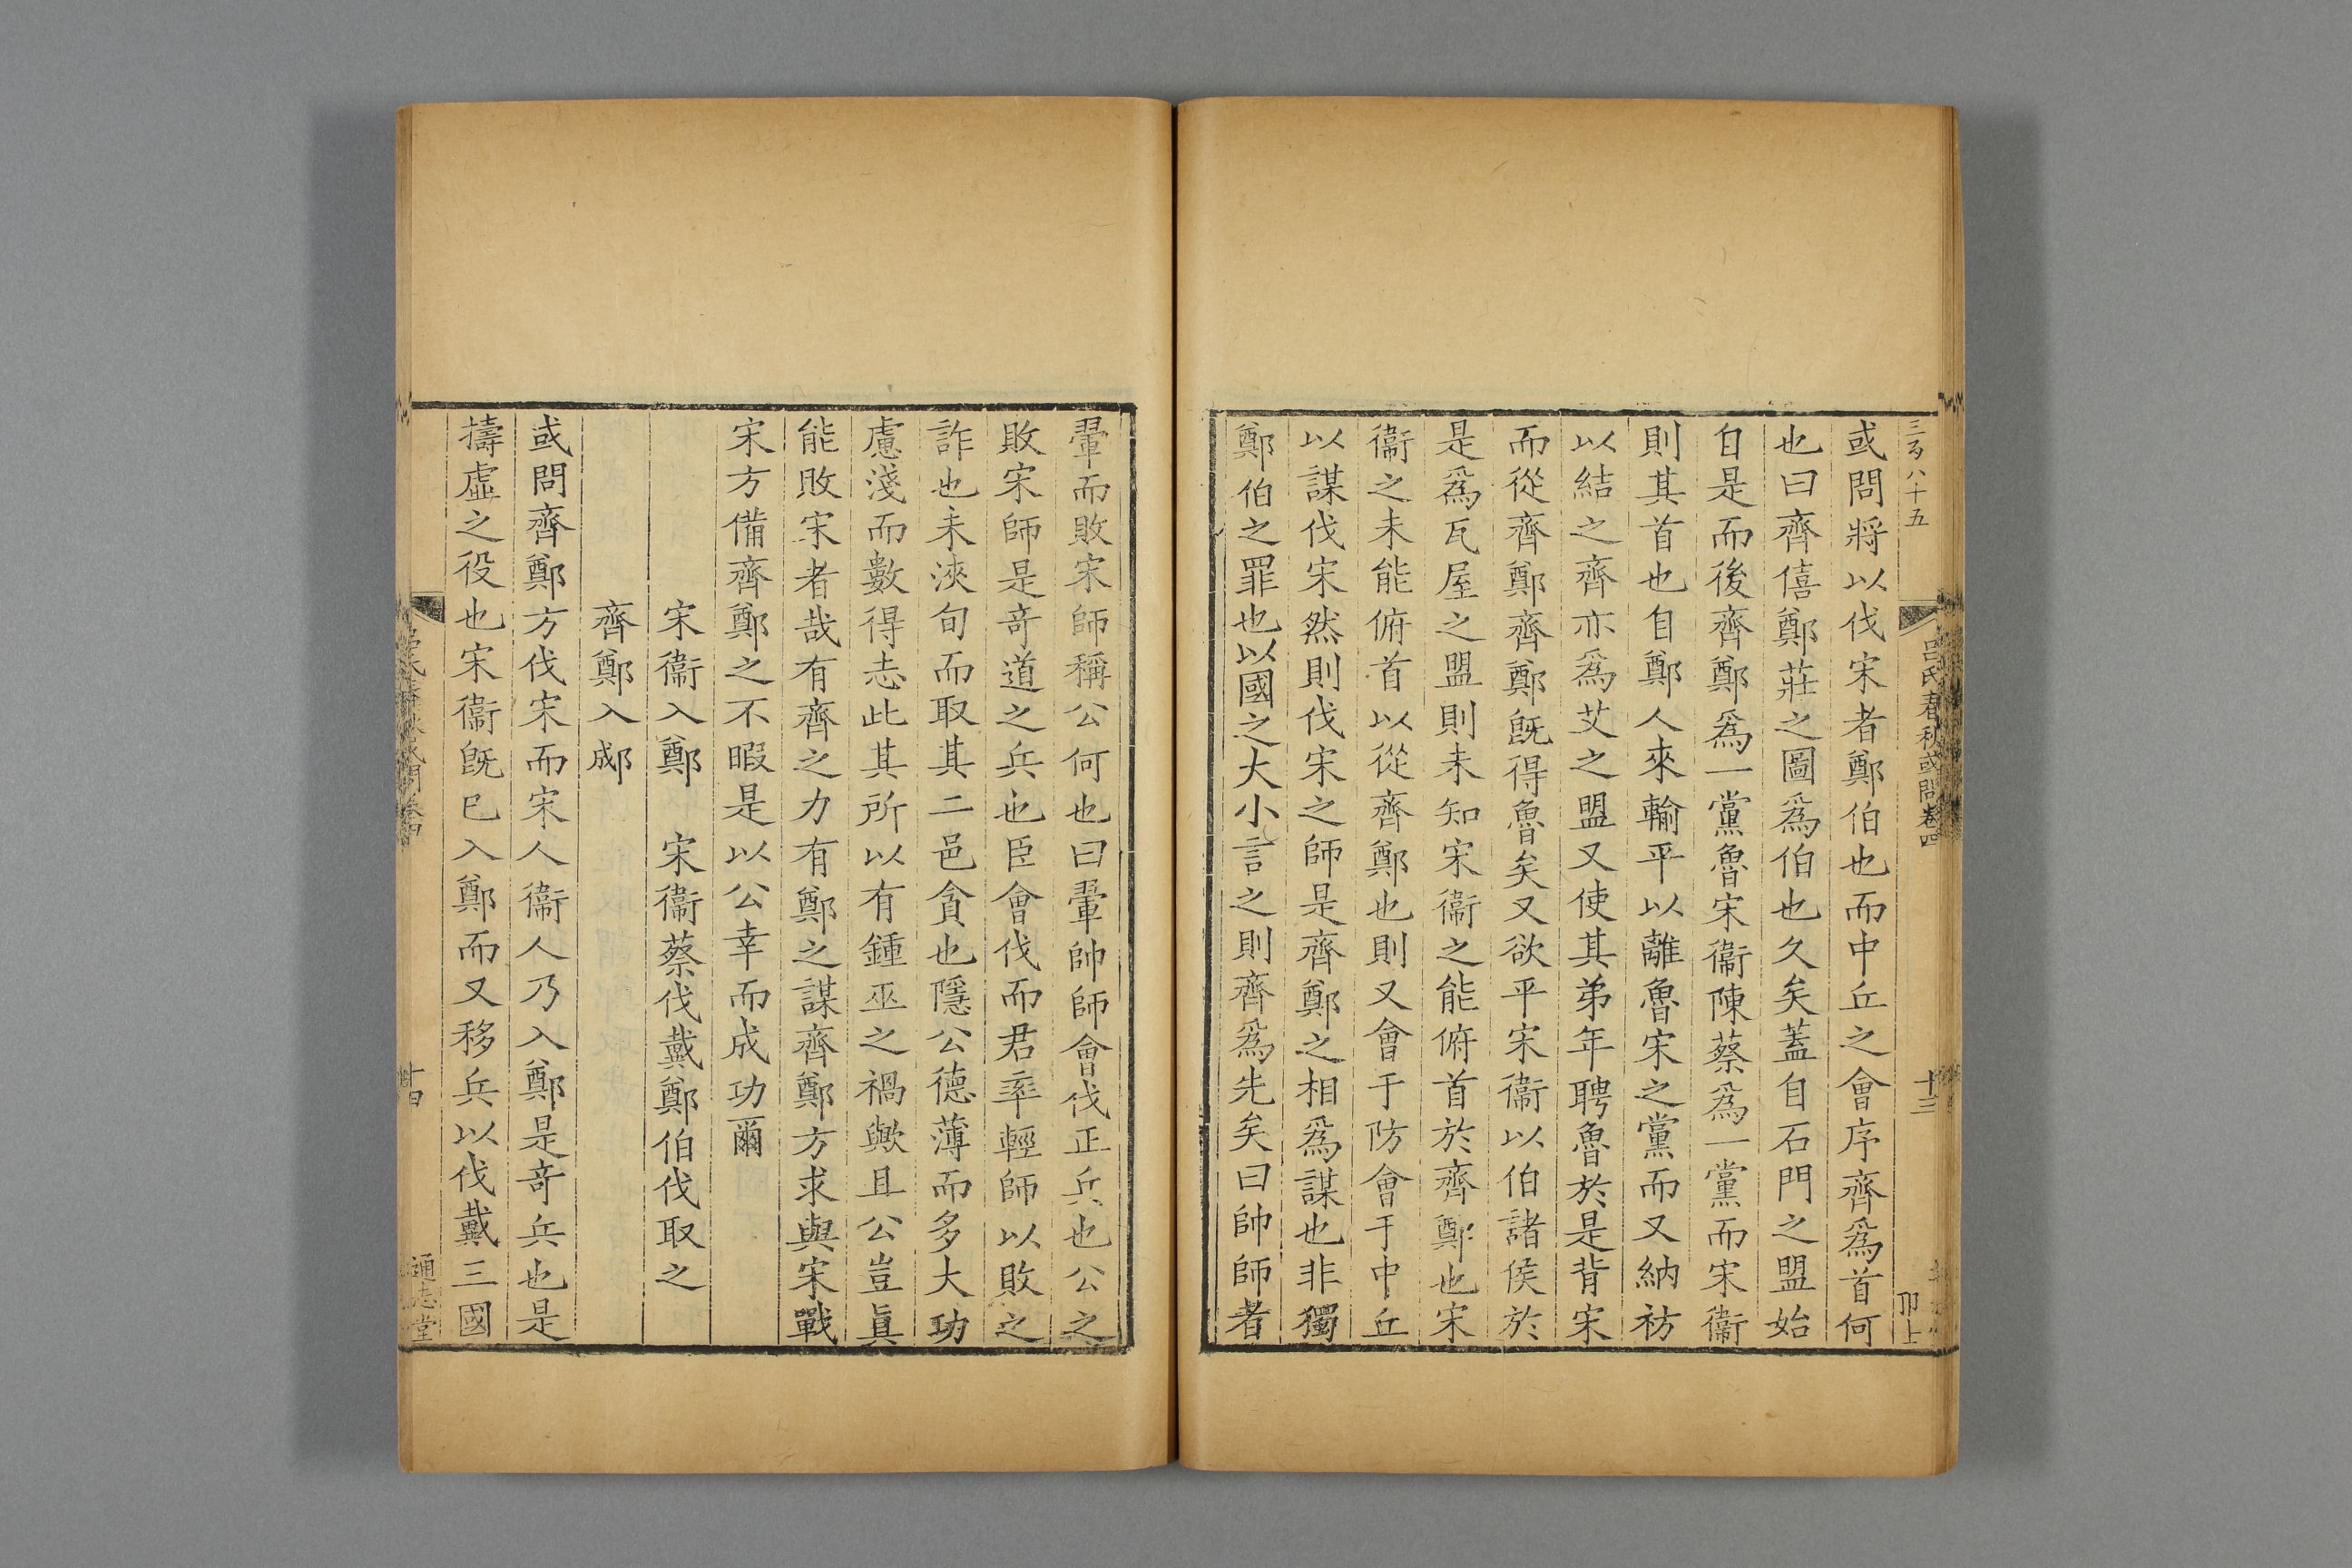 三百八十五
呂氏春秋或問卷四
十三
或問將以伐宋者鄭伯也而中丘之會序齊爲首何
也曰齊僖鄭莊之圖爲伯也久矣蓋自石門之盟始
自是而後齊鄭爲一黨魯宋衞陳蔡爲一黨而宋衞
則其首也自鄭人來輸平以離魯宋之黨而又納祊
以結之齊亦爲艾之盟又使其弟年聘魯於是背宋
而從齊鄭齊鄭旣得魯矣又欲平宋衞以伯諸侯於
是爲瓦屋之盟則未知宋衞之能俯首於齊鄭也宋
衞之未能俯首以從齊鄭也則又會于防會于中丘
以謀伐宋然則伐宋之師是齊鄭之相爲謀也非獨
鄭伯之罪也以國之大小言之則齊爲先矣曰帥師者
翬而敗宋師稱公何也曰翬帥師會伐正兵也公之
敗宋師是竒道之兵也臣會伐而君率輕師以敗之
詐也未浹旬而取其二邑貪也隱公德薄而多大功
慮淺而數得志此其所以有鍾巫之禍歟且公豈眞
能敗宋者哉有齊之力有鄭之謀齊鄭方求與宋戰
宋方備齊鄭之不暇是以公幸而成功爾
宋衞入鄭　宋衞蔡伐戴鄭伯伐取之
齊鄭入郕
或問齊鄭方伐宋而宋人衞人乃入鄭是竒兵也是
擣虛之役也宋衞旣已入鄭而又移兵以伐戴三國
十四
通志堂